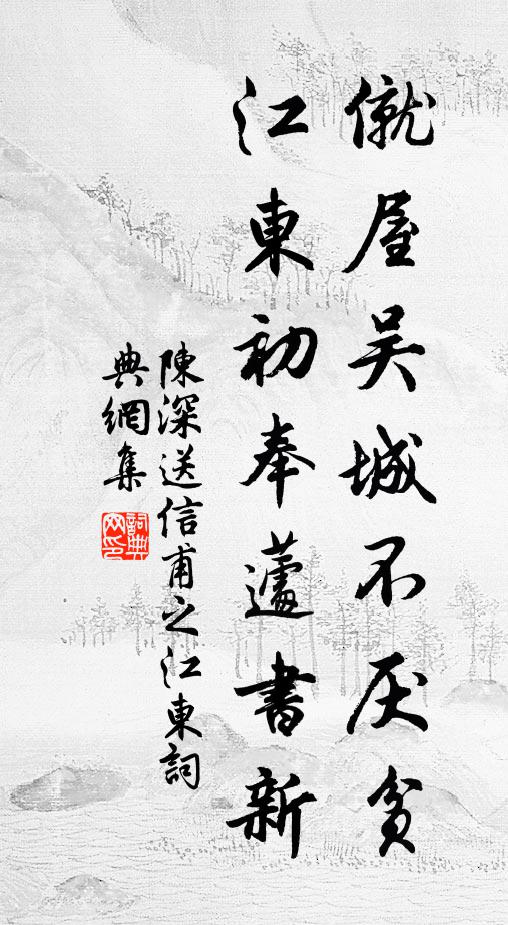 僦屋吴城不厌貧
江東初奉蘧書新
陳深送信甫之江東詞
典網集
詞典
网印